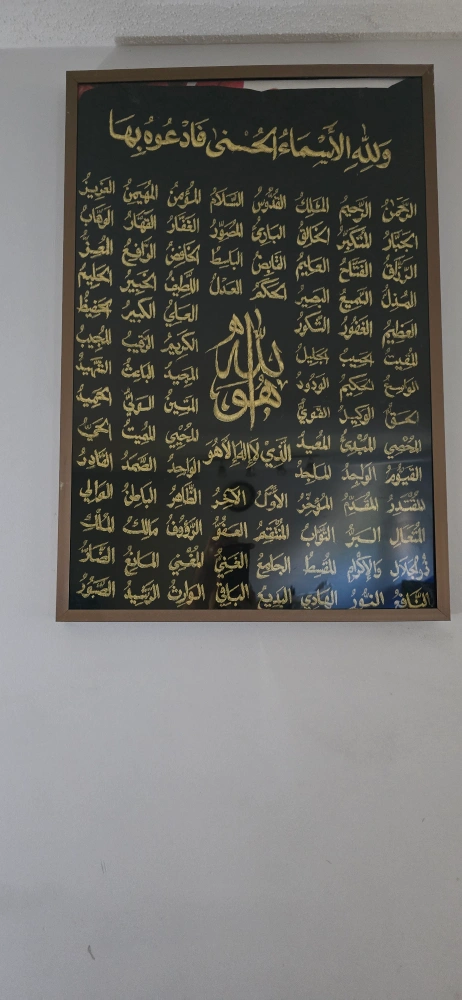 وَلِلّٰهِ الْأَسْمَاءُ الْحُسْنٰى فَادْعُوهُ بِهَا
الرَّحْمٰنُ الرَّحِيمُ المَلِكُ القُدُّوسُ السَّلَامُ المُؤْمِنُ المُهَيْمِنُ العَزِيزُ
الجَبَّارُ المُتَكَبِّرُ الخَالِقُ البَارِئُ المُصَوِّرُ الغَفَّارُ القَهَّارُ الوَهَّابُ
الرَّزَّاقُ الفَتَّاحُ العَلِيمُ القَابِضُ البَاسِطُ الخَافِضُ الرَّافِعُ المُعِزُّ
المُذِلُّ السَّمِيعُ البَصِيرُ الحَكَمُ العَدْلُ اللَّطِيفُ الخَبِيرُ الحَلِيمُ
العَظِيمُ الغَفُورُ الشَّكُورُ العَلِيُّ الكَبِيرُ الحَفِيظُ
المُقِيتُ الحَسِيبُ الجَلِيلُ الكَرِيمُ الرَّقِيبُ المُجِيبُ
الوَاسِعُ الحَكِيمُ الوَدُودُ المَجِيدُ البَاعِثُ الشَّهِيدُ
الحَقُّ الوَكِيلُ القَوِيُّ المَتِينُ الوَلِيُّ الحَمِيدُ
هُوَ اللّٰهُ
المُحْصِي المُبْدِئُ المُعِيدُ الَّذِي لَا إِلٰهَ إِلَّا هُوَ المُحْيِي المُمِيتُ الحَيُّ
القَيُّومُ الوَاجِدُ المَاجِدُ الوَاحِدُ الصَّمَدُ القَادِرُ
المُقْتَدِرُ المُقَدِّمُ المُؤَخِّرُ الأَوَّلُ الآخِرُ الظَّاهِرُ البَاطِنُ الوَالِي
المُتَعَالِ البَرُّ التَّوَّابُ المُنْتَقِمُ العَفُوُّ الرَّؤُوفُ مَالِكُ المُلْكِ
ذُو الجَلَالِ وَالإِكْرَامِ المُقْسِطُ الجَامِعُ الغَنِيُّ المُغْنِي المَانِعُ الضَّارُّ
النَّافِعُ النُّورُ الهَادِي البَدِيعُ البَاقِي الوَارِثُ الرَّشِيدُ الصَّبُورُ